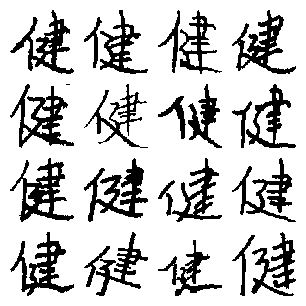 健健健健
健健健健
健健健健
健健健健